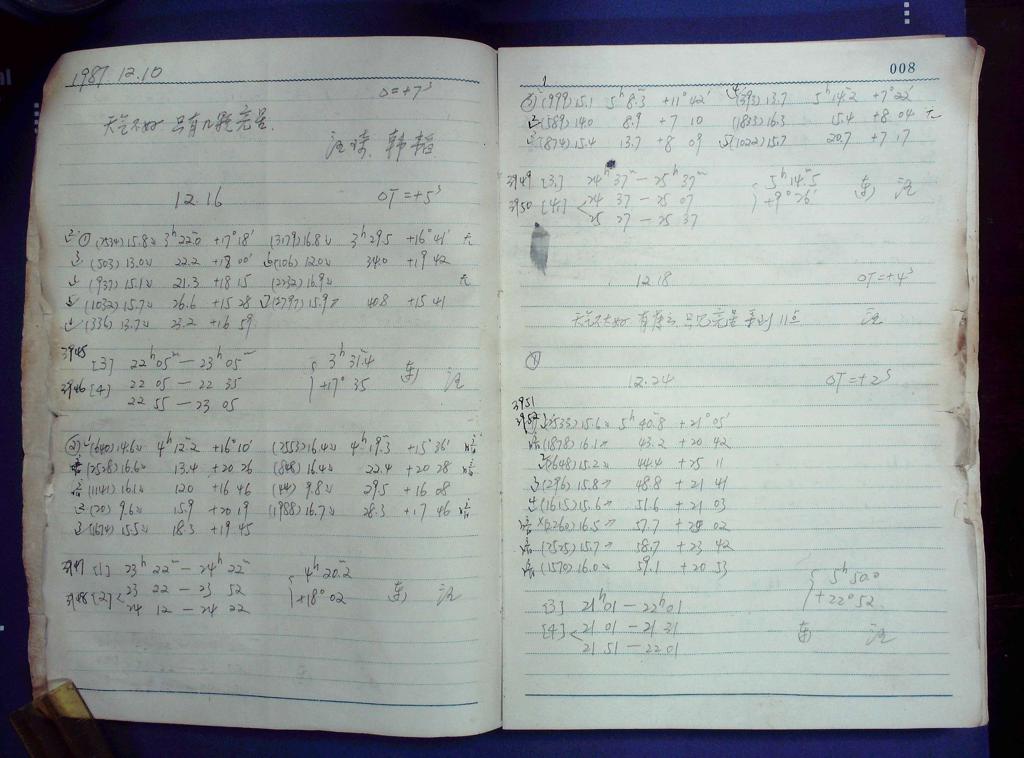 1987 12.10
O=+7ˢ
天气不好 只有几颗亮星.
汪琦、韩韬
12.16
OT=+5ˢ
① (2534) 15.8 3ʰ 22.0 +17° 18′ (3179) 16.8 3ʰ 29.5 +16° 41′ 无
(503) 13.0 22.2 +18 00′ (106) 12.0 34.0 +19 42
(937) 15.1 21.3 +18 15 (2232) 16.9 无
(1032) 15.7 26.6 +15 28 (2797) 15.9 40.8 +15 41
(336) 13.7 23.2 +16 59
3945 [3] 22ʰ 05ᵐ — 23ʰ 05ᵐ 3ʰ 31.4
3946 [4] 22 05 — 22 35 +17° 35 东 汪
22 55 — 23 05
② (640) 14.6 4ʰ 12.2 +16° 10′ (2553) 16.4 4ʰ 19.3 +15° 36′ 暗
暗 (2528) 16.6 13.4 +20 26 (848) 16.4 22.4 +20 28 暗
暗 (1141) 16.1 12.0 +16 46 (44) 9.8 29.5 +16 08
(20) 9.6 15.9 +20 19 (1988) 16.7 28.3 +17 46 暗
(1674) 15.5 18.3 +19 45
3947 [1] 23ʰ 22ᵐ — 24ʰ 22ᵐ 4ʰ 20.2
3948 [2] 23 22 — 23 52 +18° 02 东 汪
24 12 — 24 22
008
③ (999) 15.1 5ʰ 8.3 +11° 42′ (393) 13.7 5ʰ 14.2 +7° 22′
(589) 14.0 8.9 +7 10 (1813) 16.3 15.4 +8 04 无
(874) 15.4 13.7 +8 09 (1022) 15.7 20.7 +7 17
3949 [3] 24ʰ 37ᵐ — 25ʰ 37ᵐ 5ʰ 14.5 东 汪
3950 [4] 24 37 — 25 07 +9° 26′
25 27 — 25 37
12.18 OT=+4ˢ
天气不太好 有薄云 只见亮星 等到 11点 汪
①
12.24 OT=+2ˢ
3951
3952 (2533) 15.6 5ʰ 40.8 +21° 05′
暗 (1878) 16.1 43.2 +20 42
(648) 15.2 44.4 +25 11
(296) 15.8 48.8 +21 41
(1615) 15.6 51.6 +21 03
暗 (2260) 16.5 57.7 02
暗 (2525) 15.7 58.7 +23 42
暗 (1570) 16.0 59.1 +20 53
5ʰ 50.0
[3] 21ʰ 01 — 22ʰ 01 +22° 52
[4] 21 01 — 21 31 东 汪
21 51 — 22 01